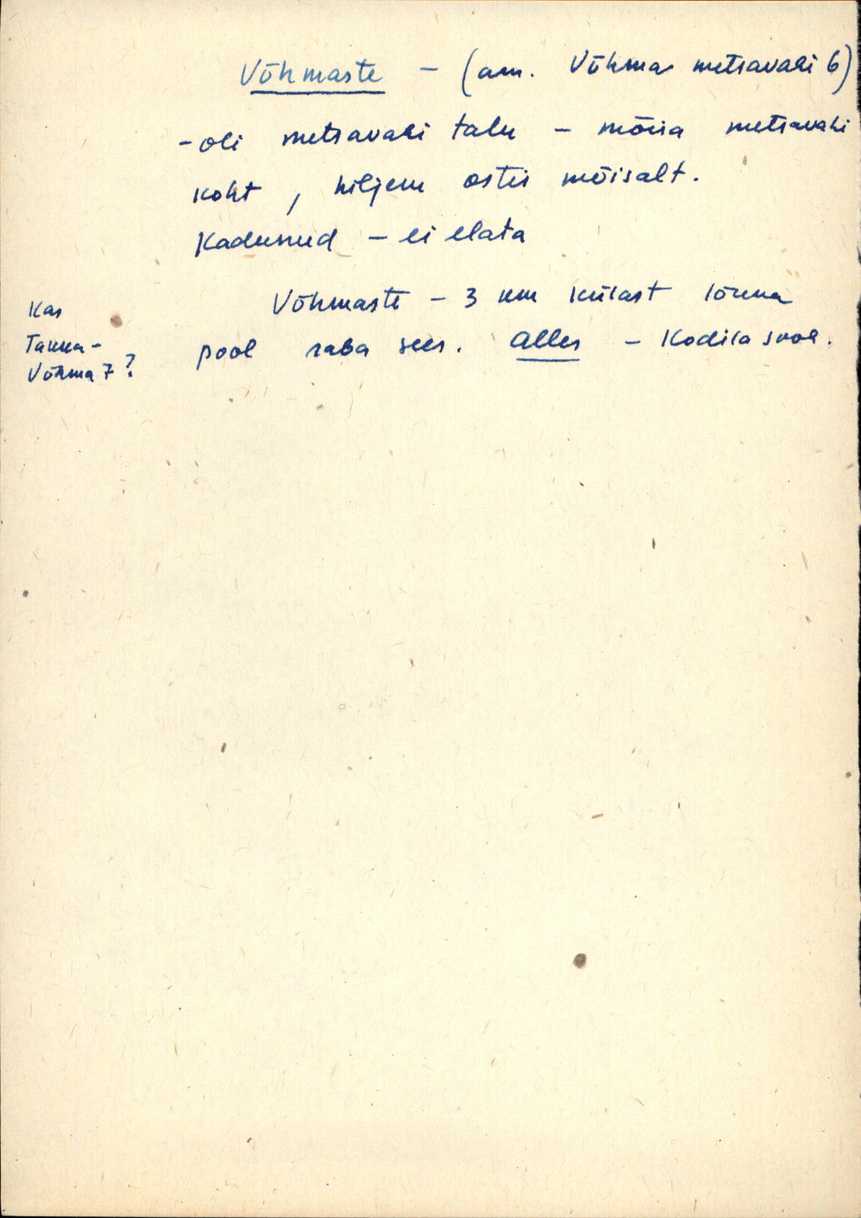 Võhmaste - (am. Võhma metsavahi 6)
- oli metsavahi talu - mõisa metsavahi
koht, hiljem ostis mõisalt.
Kadunud - ei elata
Võhmaste - 3 km külast lõuna
pool raba sees. Alles - Kodila sool.
Kas
Tamma-
Võhma 7?